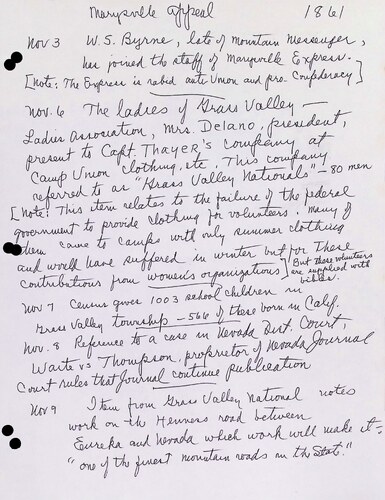 Marysville Appeal 1861
Nov 3 W.S. Byrne, late of mountain messenger,
has joined the staff of Marysville Express.
[Note: The Express is rabid anti Union and pro. Confederacy]
Nov. 6 The ladies of Grass Valley —
Ladies Association, Mrs. Delano, president,
present to Capt. Thayer's company at
Camp Union clothing, etc. This company
referred to as "Grass Valley Nationals" - 80 men
[Note: This item relates to the failure of the federal
government to provide clothing for volunteers. Many of
them came to camps with only summer clothing
and would have suffered in winter but for these
contributions from women's organizations]
But these volunteers
are supplied with
bibles.
Nov 7 Census gives 1003 school children in
Grass Valley township - 566 of these born in Calif.
Nov. 8 Reference to a case in Nevada Dist. Court,
Waite vs Thompson, proprietor of Nevada Journal
Court rules that Journal continue publication
Nov 9 Item from Grass Valley National notes
work on the Henness road between
Eureka and Nevada which work will make it -
"one of the finest mountain roads in the State."